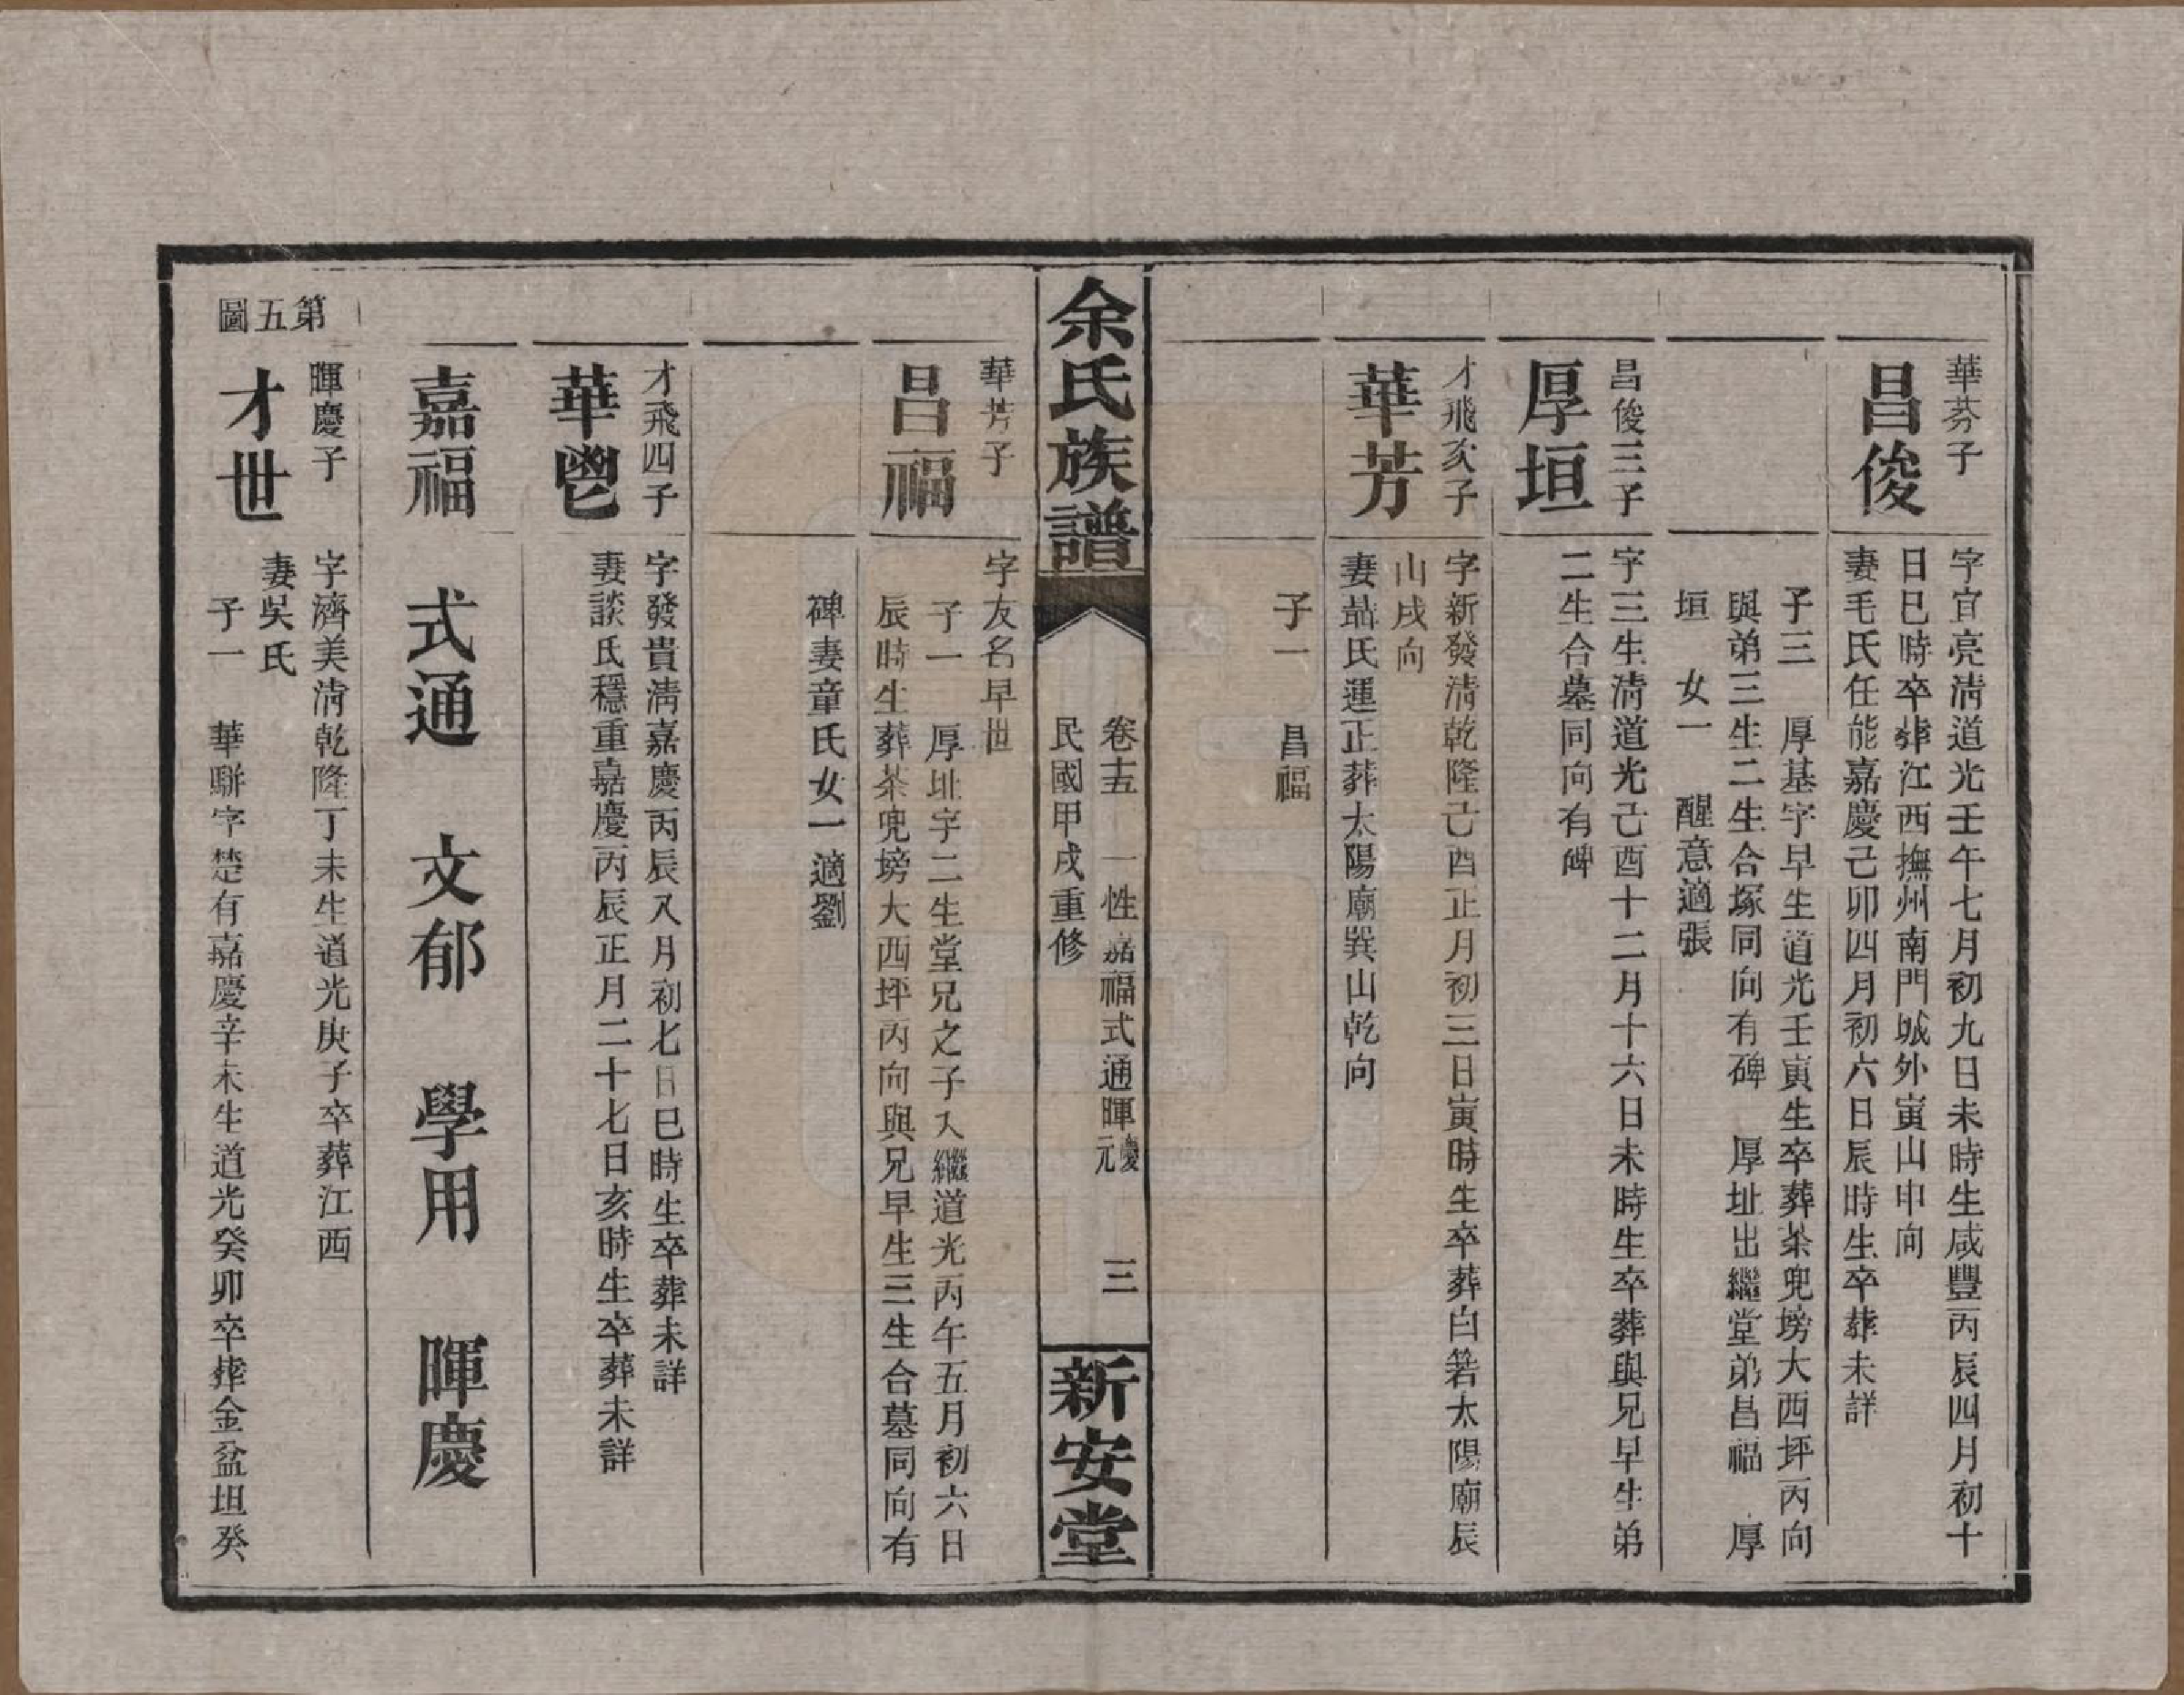 華芬子
昌俊
字宜亮清道光壬午七月初九日未時生咸豐丙辰四月初十
日巳時卒葬江西撫州南門城外寅山申向
妻毛氏任能嘉慶己卯四月初六日辰時生卒葬未詳
子三　厚基字早生道光壬寅生卒葬茶兜塝大西坪丙向
與弟三生二生合塚同向有碑　厚址出繼堂弟昌福　厚
垣　女一　醒意適張
昌俊三子
厚垣
字三生清道光己酉十二月十六日未時生卒葬與兄早生弟
二生合墓同向有碑
才飛次子
華芳
字新發清乾隆己酉正月初三日寅時生卒葬白箬太陽廟辰
山戌向
妻聶氏運正葬太陽廟巽山乾向
子一　昌福
余氏族譜
卷十五　一性嘉福式通暉慶元　三
民國甲戌重修
新安堂
華芳子
昌福
字友名早世
子一　厚址字二生堂兄之子入繼道光丙午五月初六日
辰時生葬茶兜塝大西坪丙向與兄早生三生合墓同向有
碑妻童氏女一適劉
才飛四子
華鬯
字發貴清嘉慶丙辰又月初七日巳時生卒葬未詳
妻談氏穩重嘉慶丙辰正月二十七日亥時生卒葬未詳
嘉福　式通　文郁　學用　暉慶
第五圖
暉慶子
才世
字濟美清乾隆丁未生道光庚子卒葬江西
妻吳氏
子一　華駢字楚有嘉慶辛未生道光癸卯卒葬金盆坦癸